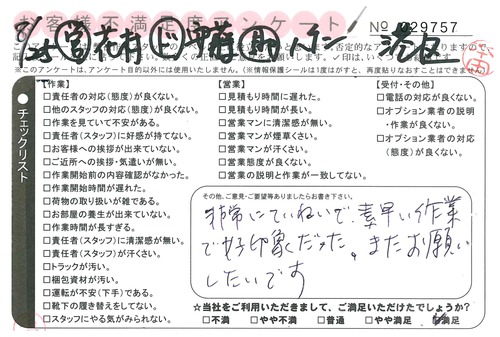 お客様不満足度アンケート
№ 029757
8/25
港区
このアンケートは、アンケート目的以外には使用いたしません。(※情報保護シールは1度はがすと、再度貼りなおすことはできません
チェックリスト
【作業】
□責任者の対応(態度)が良くない。
□他のスタッフの対応(態度)が良くない。
□作業を見ていて不安がある。
□責任者(スタッフ)に好感が持てない。
□お客様への挨拶が出来ていない。
□ご近所への挨拶・気遣いが無い。
□作業開始前の内容確認がなかった。
□作業開始時間が遅れた。
□荷物の取り扱いが雑である。
□お部屋の養生が出来ていない。
□作業時間が長すぎる。
□責任者(スタッフ)に清潔感が無い。
□責任者(スタッフ)が汗くさい。
□トラックが汚い。
□梱包資材が汚い。
□運転が不安(下手)である。
□靴下の履き替えをしてない。
□スタッフにやる気がみられない。
【営業】
□見積もり時間に遅れた。
□見積もり時間が長い。
□営業マンに清潔感が無い。
□営業マンが煙草くさい。
□営業マンが汗くさい。
□営業態度が良くない。
□営業の説明と作業が一致してない。
【受付・その他】
□電話の対応が良くない。
□オプション業者の説明
・作業が良くない。
□オプション業者の対応
(態度)が良くない。
その他、ご意見・ご要望等ありましたらお書き下さい。
非常にていねいで、素早い作業
で好印象だった。またお願い
したいです
☆当社をご利用いただきまして、ご満足いただけたでしょうか?
□不満 □やや不満 □普通 □やや満足 □満足